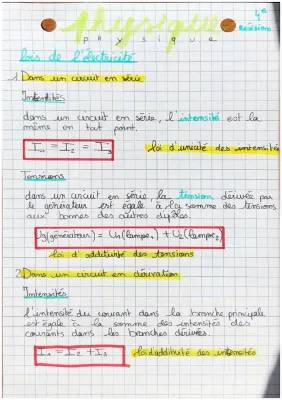 physique
physique
4e
Révision
lois de l'électricité
1. Dans un circuit en série
Intensités
dans un circuit en série, l'intensité est la
même en tout point.
I1 = I2 = I3 loi d'unicité des intensités
Tensions
dans un circuit en série la tension dérivée par
le générateur est égale à la somme des tensions
aux bornes des autres dipôles.
Ug(générateur) = U1(lampe1) + U2(lampe2)
loi d'additivité des tensions
2. Dans un circuit en dérivation
Intensités
l'intensité du courant dans la branche principale
est égale à la somme des intensités des
courants dans les branches dérivées.
I1 = I2 + I3 loi d'additivité des intensités